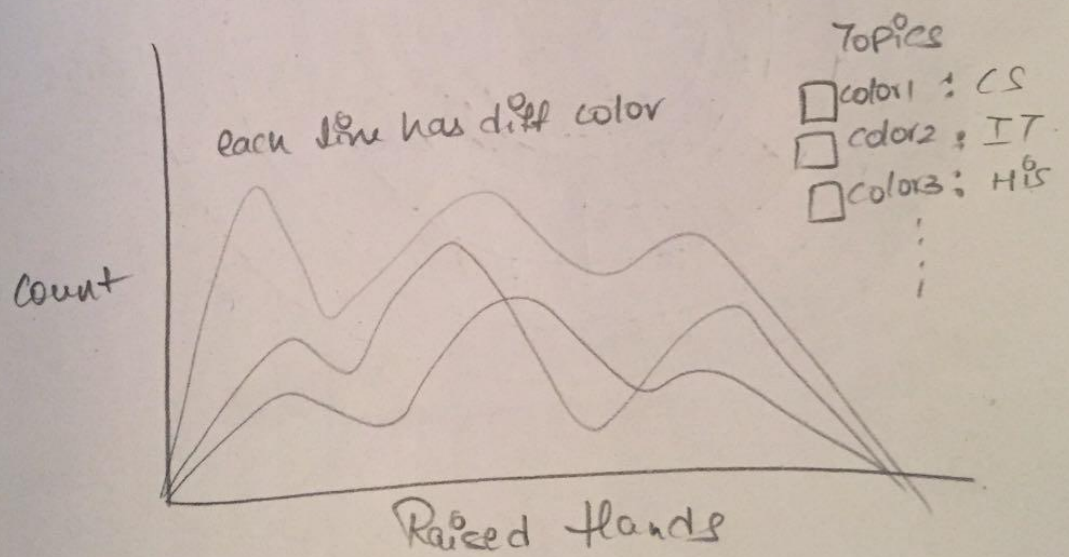 Topics
color1 : CS
color2 : IT
color3 : His
each line has diff color
count
Raised Hands